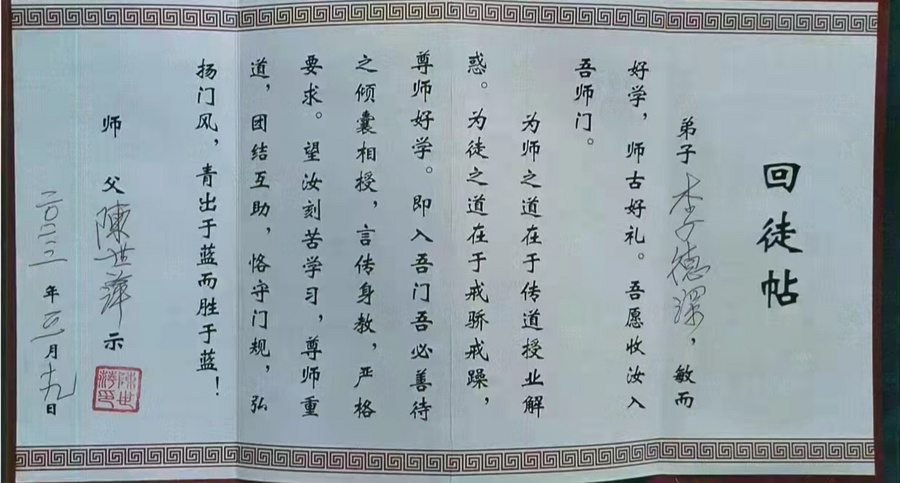 回徒帖
弟子李德深，敏而
好学，师古好礼。吾愿收汝入
吾师门。
为师之道在于传道授业解
惑。为徒之道在于戒骄戒躁，
尊师好学。即入吾门吾必善待
之倾囊相授，言传身教，严格
要求。望汝刻苦学习，尊师重
道，团结互助，恪守门规，弘
扬门风，青出于蓝而胜于蓝！
师父陳世萍示
二〇二二年三月十九日